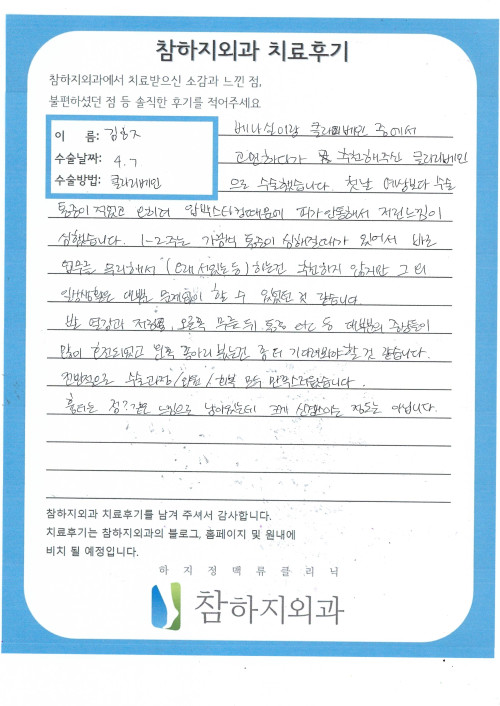 참하지외과 치료후기
참하지외과에서 치료받으신 소감과 느낀 점,
불편하셨던 점 등 솔직한 후기를 적어주세요
이 름:
수술날짜: 4.7
수술방법: 클라리베인
베나실이랑 클라리베인 중에서
고민하다가 추천해주신 클라리베인
으로 수술했습니다. 첫날 예상보다 수술
통증이 적었고 오히려 압박스타킹때문에 피가 안통해서 저린느낌이
심했습니다. 1-2주는 가끔씩 통증이 심해질때가 있어서 바로
업무를 해서 (오래 서있는 등) 하는건 추천하지 않지만 그 외
일상생활은 대부분 문제없이 할 수 있었던 것 같습니다.
발 저림, 오른쪽 무릎 뒤 통증 etc 등 대부분의 증상들이
많이 호전되었고 왼쪽 종아리 는건 좀 더 기다려봐야할 것 같습니다.
전반적으로 수술과정/ /회복 모두 만족스러웠습니다.
흉터는 점?같은 느낌으로 남아있는데 크게 신경쓰이는 정도는 아닙니다.
참하지외과 치료후기를 남겨 주셔서 감사합니다.
치료후기는 참하지외과의 블로그, 홈페이지 및 원내에
비치 될 예정입니다.
하지정맥류클리닉
참하지외과